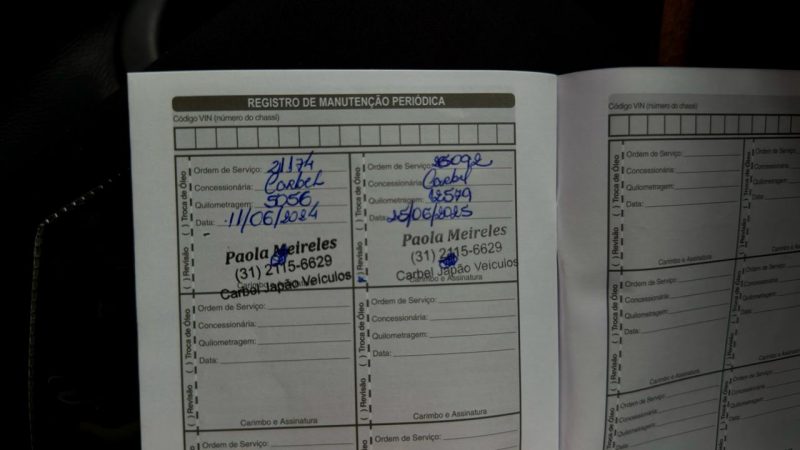 REGISTRO DE MANUTENÇÃO PERIÓDICA
Código VIN (número do chassi)
( ) Revisão ( ) Troca de Óleo
Ordem de Serviço: 21174
Concessionária: Carbel
Quilometragem: 5056
Data: 11/06/2024
Paola Meireles
(31) 2115-6629
Carbel Japão Veículos
Carimbo e Assinatura
( ) Revisão ( ) Troca de Óleo
Ordem de Serviço:
Concessionária: Carbel
Quilometragem: 12579
Data: 25/06/2025
Paola Meireles
(31) 2115-6629
Carbel Japão Veículos
Carimbo e Assinatura
( ) Revisão ( ) Troca de Óleo
Ordem de Serviço:
Concessionária:
Quilometragem:
Data:
Carimbo e Assinatura
( ) Revisão ( ) Troca de Óleo
Ordem de Serviço:
Concessionária:
Quilometragem:
Data:
Carimbo e Assinatura
Ordem de Serviço:
Ordem de Serviço:
Código VIN (número do chassi)
( ) Revisão ( ) Troca de Óleo
Ordem de Serviço:
Concessionária:
Quilometragem:
Data:
Carimbo e
( ) Revisão ( ) Troca de Óleo
Ordem de Serviço:
Concessionária:
Quilometragem:
Data:
Carimbo e
Ordem de Serviço: